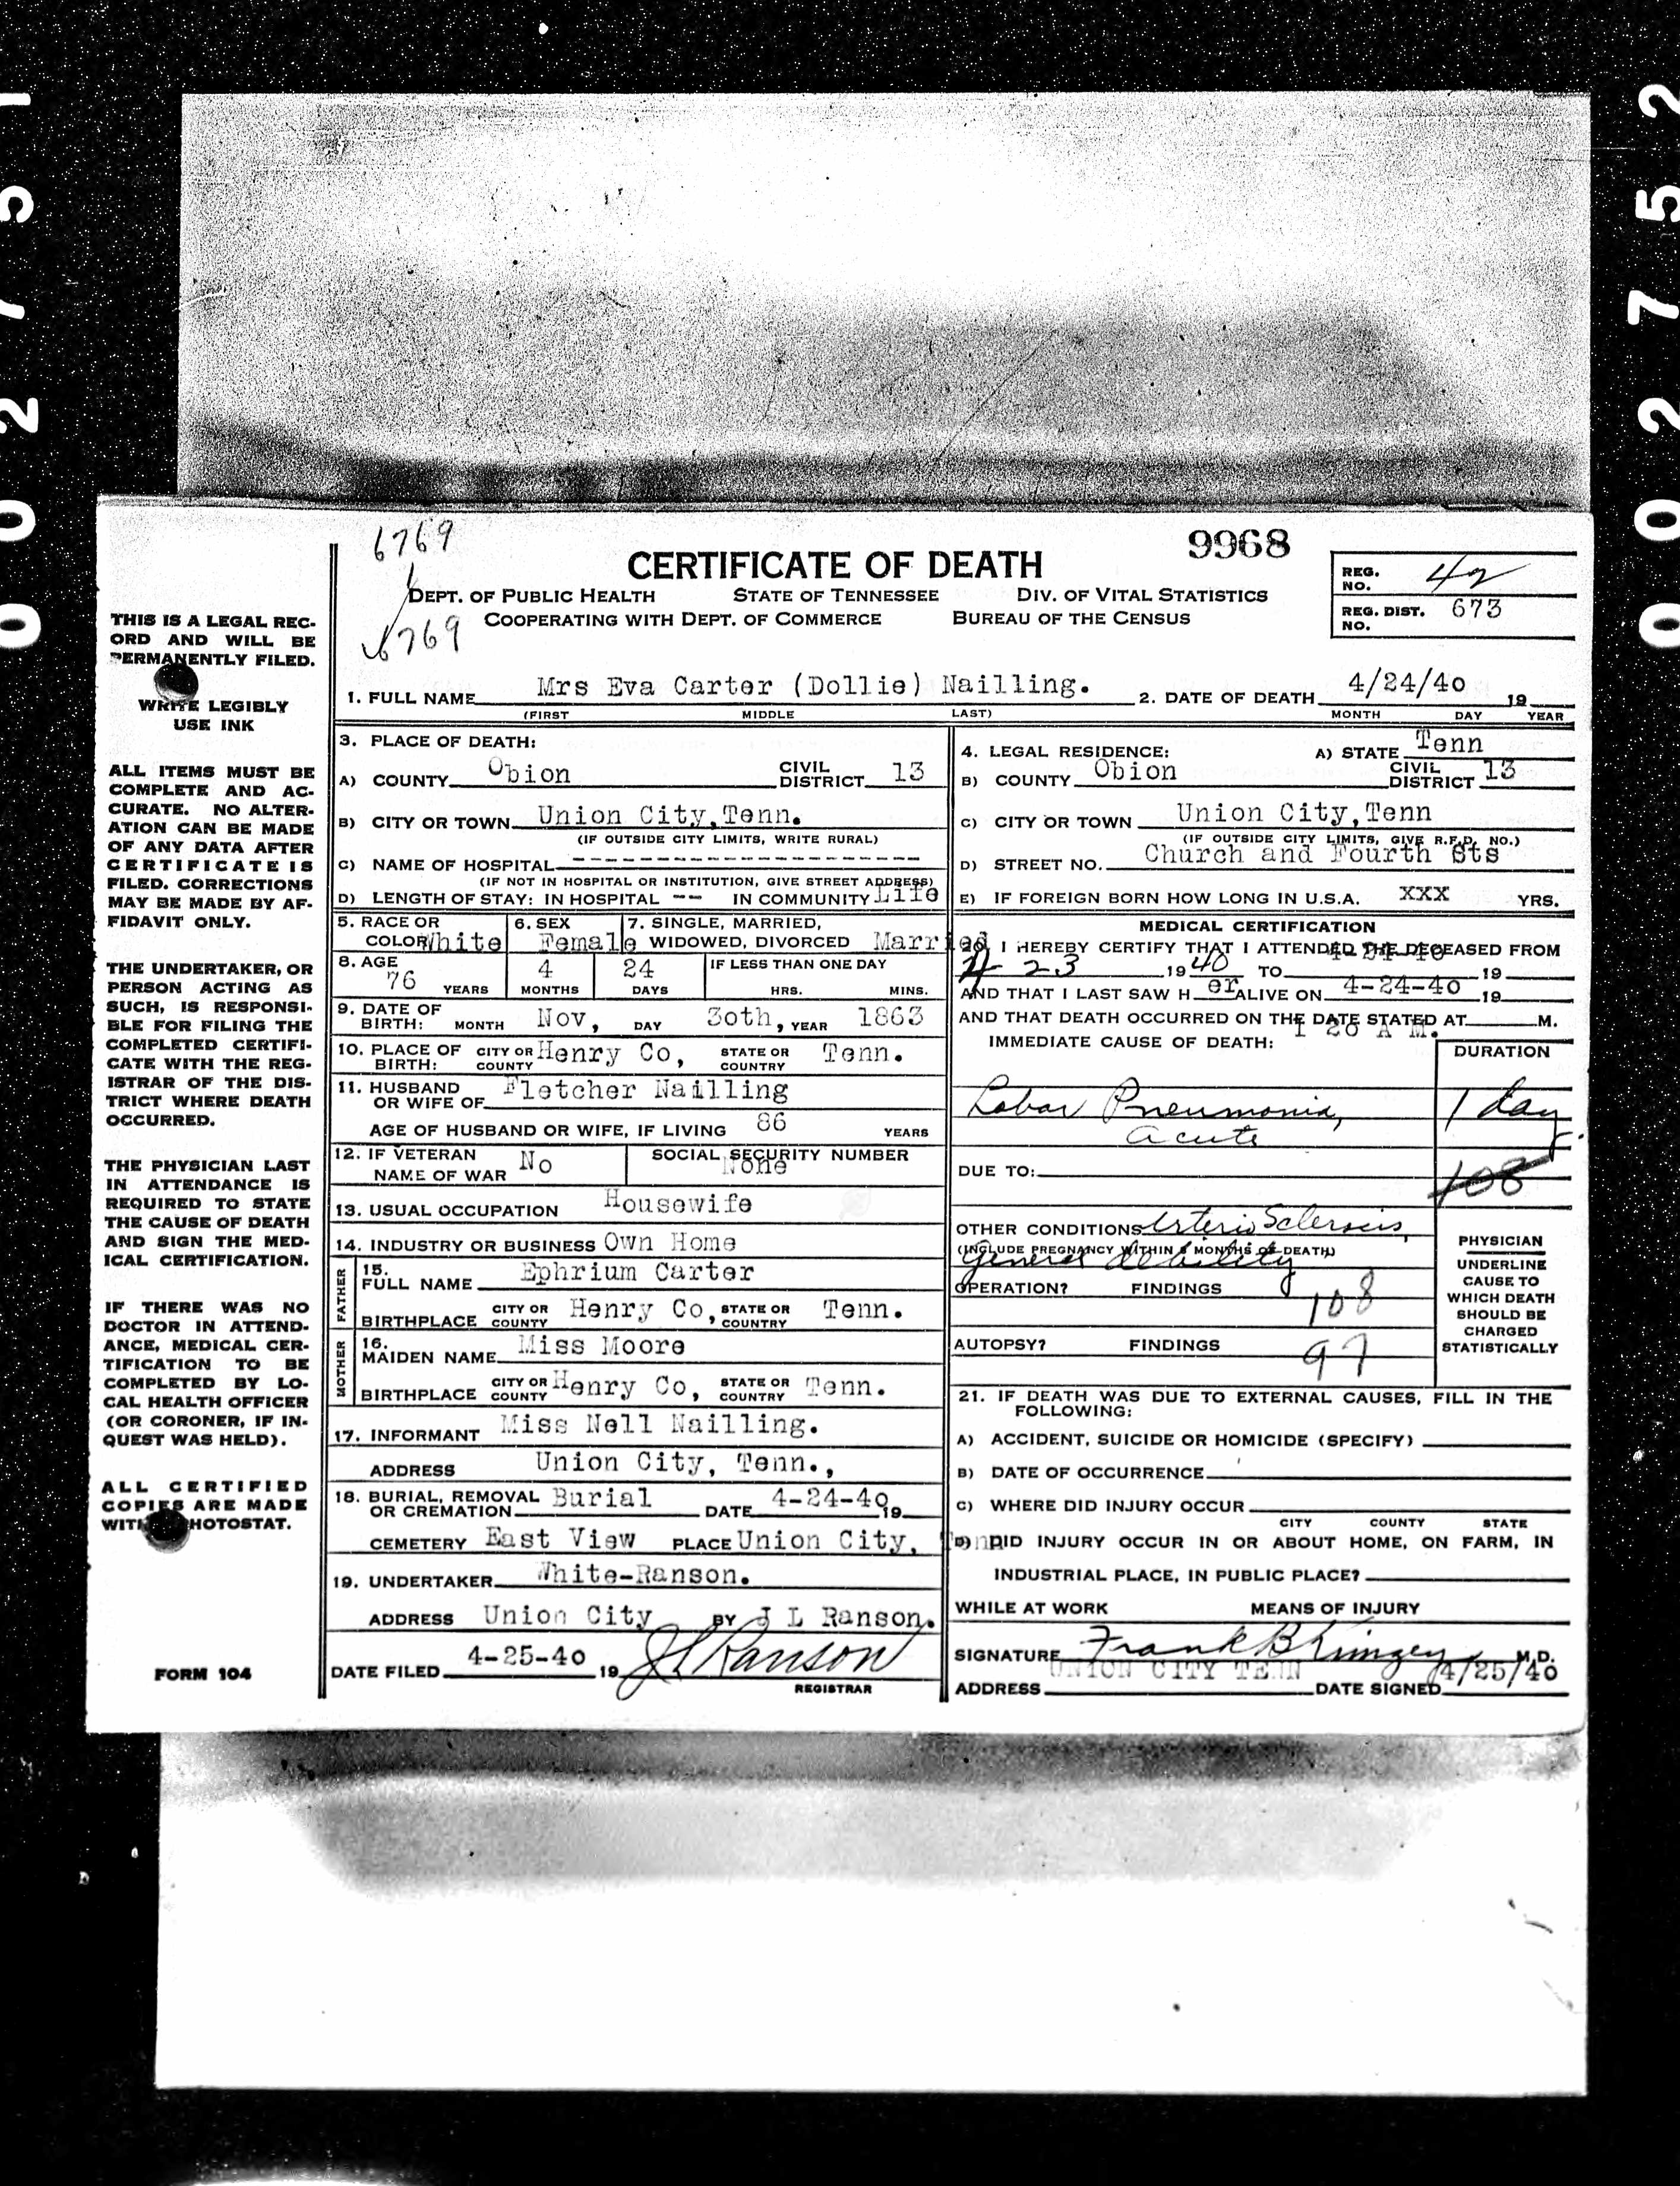 0 0 2 7 5 1
0 0 2 7 5 2
6769
9968
CERTIFICATE OF DEATH
DEPT. OF PUBLIC HEALTH STATE OF TENNESSEE DIV. OF VITAL STATISTICS
COOPERATING WITH DEPT. OF COMMERCE BUREAU OF THE CENSUS
6769
REG. NO. 42
REG. DIST. NO. 673
THIS IS A LEGAL REC-
ORD AND WILL BE
PERMANENTLY FILED.
WRITE LEGIBLY
USE INK
ALL ITEMS MUST BE
COMPLETE AND AC-
CURATE. NO ALTER-
ATION CAN BE MADE
OF ANY DATA AFTER
CERTIFICATE IS
FILED. CORRECTIONS
MAY BE MADE BY AF-
FIDAVIT ONLY.
THE UNDERTAKER, OR
PERSON ACTING AS
SUCH, IS RESPONSI-
BLE FOR FILING THE
COMPLETED CERTIFI-
CATE WITH THE REG-
ISTRAR OF THE DIS-
TRICT WHERE DEATH
OCCURRED.
THE PHYSICIAN LAST
IN ATTENDANCE IS
REQUIRED TO STATE
THE CAUSE OF DEATH
AND SIGN THE MED-
ICAL CERTIFICATION.
IF THERE WAS NO
DOCTOR IN ATTEND-
ANCE, MEDICAL CER-
TIFICATION TO BE
COMPLETED BY LO-
CAL HEALTH OFFICER
(OR CORONER, IF IN-
QUEST WAS HELD).
ALL CERTIFIED
COPIES ARE MADE
WITH PHOTOSTAT.
FORM 104
1. FULL NAME Mrs Eva Carter (Dollie) Nailling. 2. DATE OF DEATH 4/24/40 19
(FIRST MIDDLE LAST) MONTH DAY YEAR
3. PLACE OF DEATH:
A) COUNTY Obion CIVIL DISTRICT 13
B) CITY OR TOWN Union City, Tenn.
(IF OUTSIDE CITY LIMITS, WRITE RURAL)
C) NAME OF HOSPITAL --------------------
(IF NOT IN HOSPITAL OR INSTITUTION, GIVE STREET ADDRESS)
D) LENGTH OF STAY: IN HOSPITAL -- IN COMMUNITY Life
5. RACE OR COLOR White 6. SEX Female 7. SINGLE, MARRIED, WIDOWED, DIVORCED Married
8. AGE 76 YEARS 4 MONTHS 24 DAYS IF LESS THAN ONE DAY HRS. MINS.
9. DATE OF BIRTH: MONTH Nov, DAY 30th, YEAR 1863
10. PLACE OF BIRTH: CITY OR COUNTY Henry Co, STATE OR COUNTRY Tenn.
11. HUSBAND OR WIFE OF Fletcher Nailling
AGE OF HUSBAND OR WIFE, IF LIVING 86 YEARS
12. IF VETERAN NAME OF WAR No SOCIAL SECURITY NUMBER None
13. USUAL OCCUPATION Housewife
14. INDUSTRY OR BUSINESS Own Home
FATHER 15. FULL NAME Ephrium Carter
BIRTHPLACE CITY OR COUNTY Henry Co, STATE OR COUNTRY Tenn.
MOTHER 16. MAIDEN NAME Miss Moore
BIRTHPLACE CITY OR COUNTY Henry Co, STATE OR COUNTRY Tenn.
17. INFORMANT Miss Nell Nailling.
ADDRESS Union City, Tenn.,
18. BURIAL, REMOVAL OR CREMATION Burial DATE 4-24-40 19
CEMETERY East View PLACE Union City, Tenn
19. UNDERTAKER White-Ranson.
ADDRESS Union City BY J L Ranson.
DATE FILED 4-25-40 19 J L Ranson
REGISTRAR
4. LEGAL RESIDENCE: A) STATE Tenn
B) COUNTY Obion CIVIL DISTRICT 13
C) CITY OR TOWN Union City, Tenn
(IF OUTSIDE CITY LIMITS, GIVE R.F.D. NO.)
D) STREET NO. Church and Fourth Sts
E) IF FOREIGN BORN HOW LONG IN U.S.A. XXX YRS.
MEDICAL CERTIFICATION
20. I HEREBY CERTIFY THAT I ATTENDED THE DECEASED FROM
4 23 1940 TO 4-24-40 19
AND THAT I LAST SAW H er ALIVE ON 4-24-40 19
AND THAT DEATH OCCURRED ON THE DATE STATED AT 1 20 A M. M.
IMMEDIATE CAUSE OF DEATH: DURATION
Lobar Pneumonia, 1 day
acute
DUE TO: 108
OTHER CONDITIONS Arterio Sclerosis,
(INCLUDE PREGNANCY WITHIN 3 MONTHS OF DEATH)
General debility
OPERATION? FINDINGS 108
AUTOPSY? FINDINGS 97
PHYSICIAN
UNDERLINE
CAUSE TO
WHICH DEATH
SHOULD BE
CHARGED
STATISTICALLY
21. IF DEATH WAS DUE TO EXTERNAL CAUSES, FILL IN THE
FOLLOWING:
A) ACCIDENT, SUICIDE OR HOMICIDE (SPECIFY)
B) DATE OF OCCURRENCE
C) WHERE DID INJURY OCCUR
CITY COUNTY STATE
D) DID INJURY OCCUR IN OR ABOUT HOME, ON FARM, IN
INDUSTRIAL PLACE, IN PUBLIC PLACE?
WHILE AT WORK MEANS OF INJURY
SIGNATURE Frank B Kimzey M.D.
ADDRESS UNION CITY TENN DATE SIGNED 4/25/40